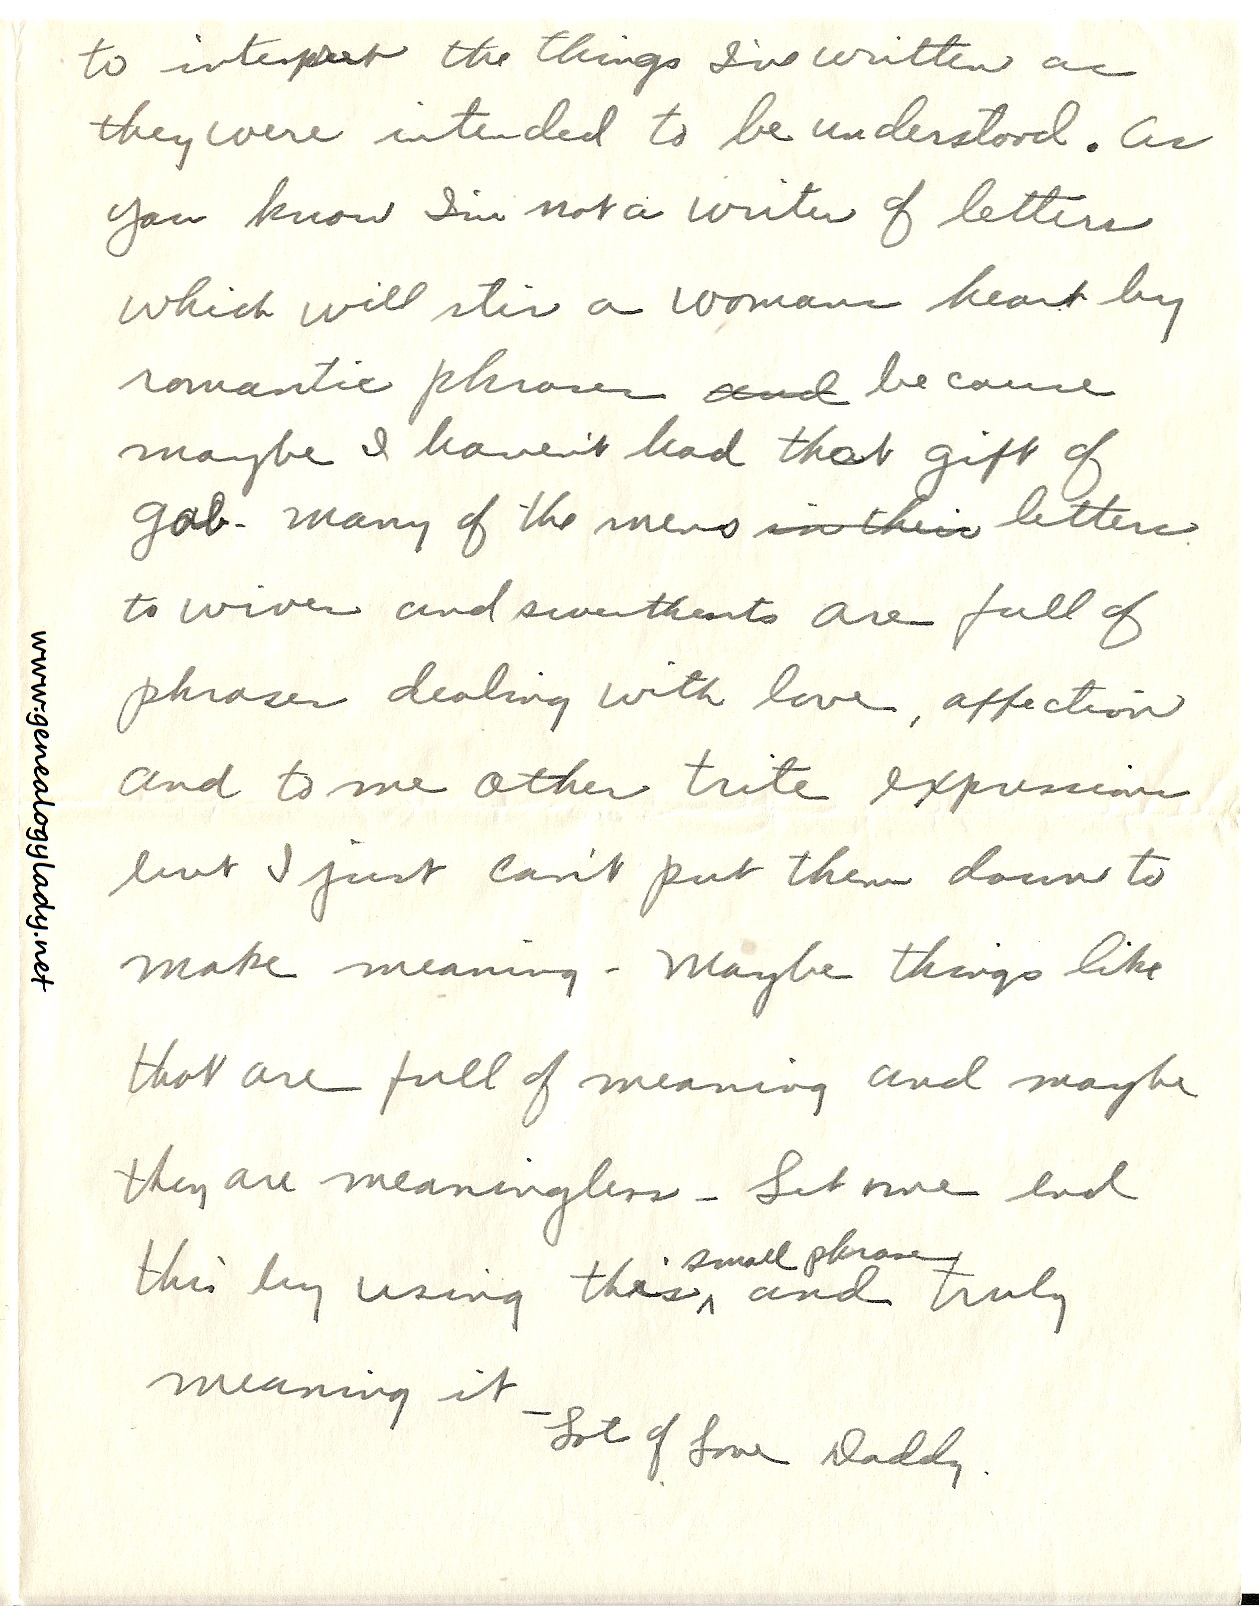 to interpret the things I've written as
they were intended to be understood. As
you know I'm not a writer of letters
which will stir a womans heart by
romantic phrases and because
maybe I haven't had that gift of
gab - many of the mens in their letters
to wives and sweethearts are full of
phrases dealing with love, affection
and to me other trite expressions
but I just can't put them down to
make meaning - Maybe things like
that are full of meaning and maybe
they are meaningless - Let me end
this by using this small phrase and truly
meaning it -
Lot of Love Daddy.
www.genealogylady.net